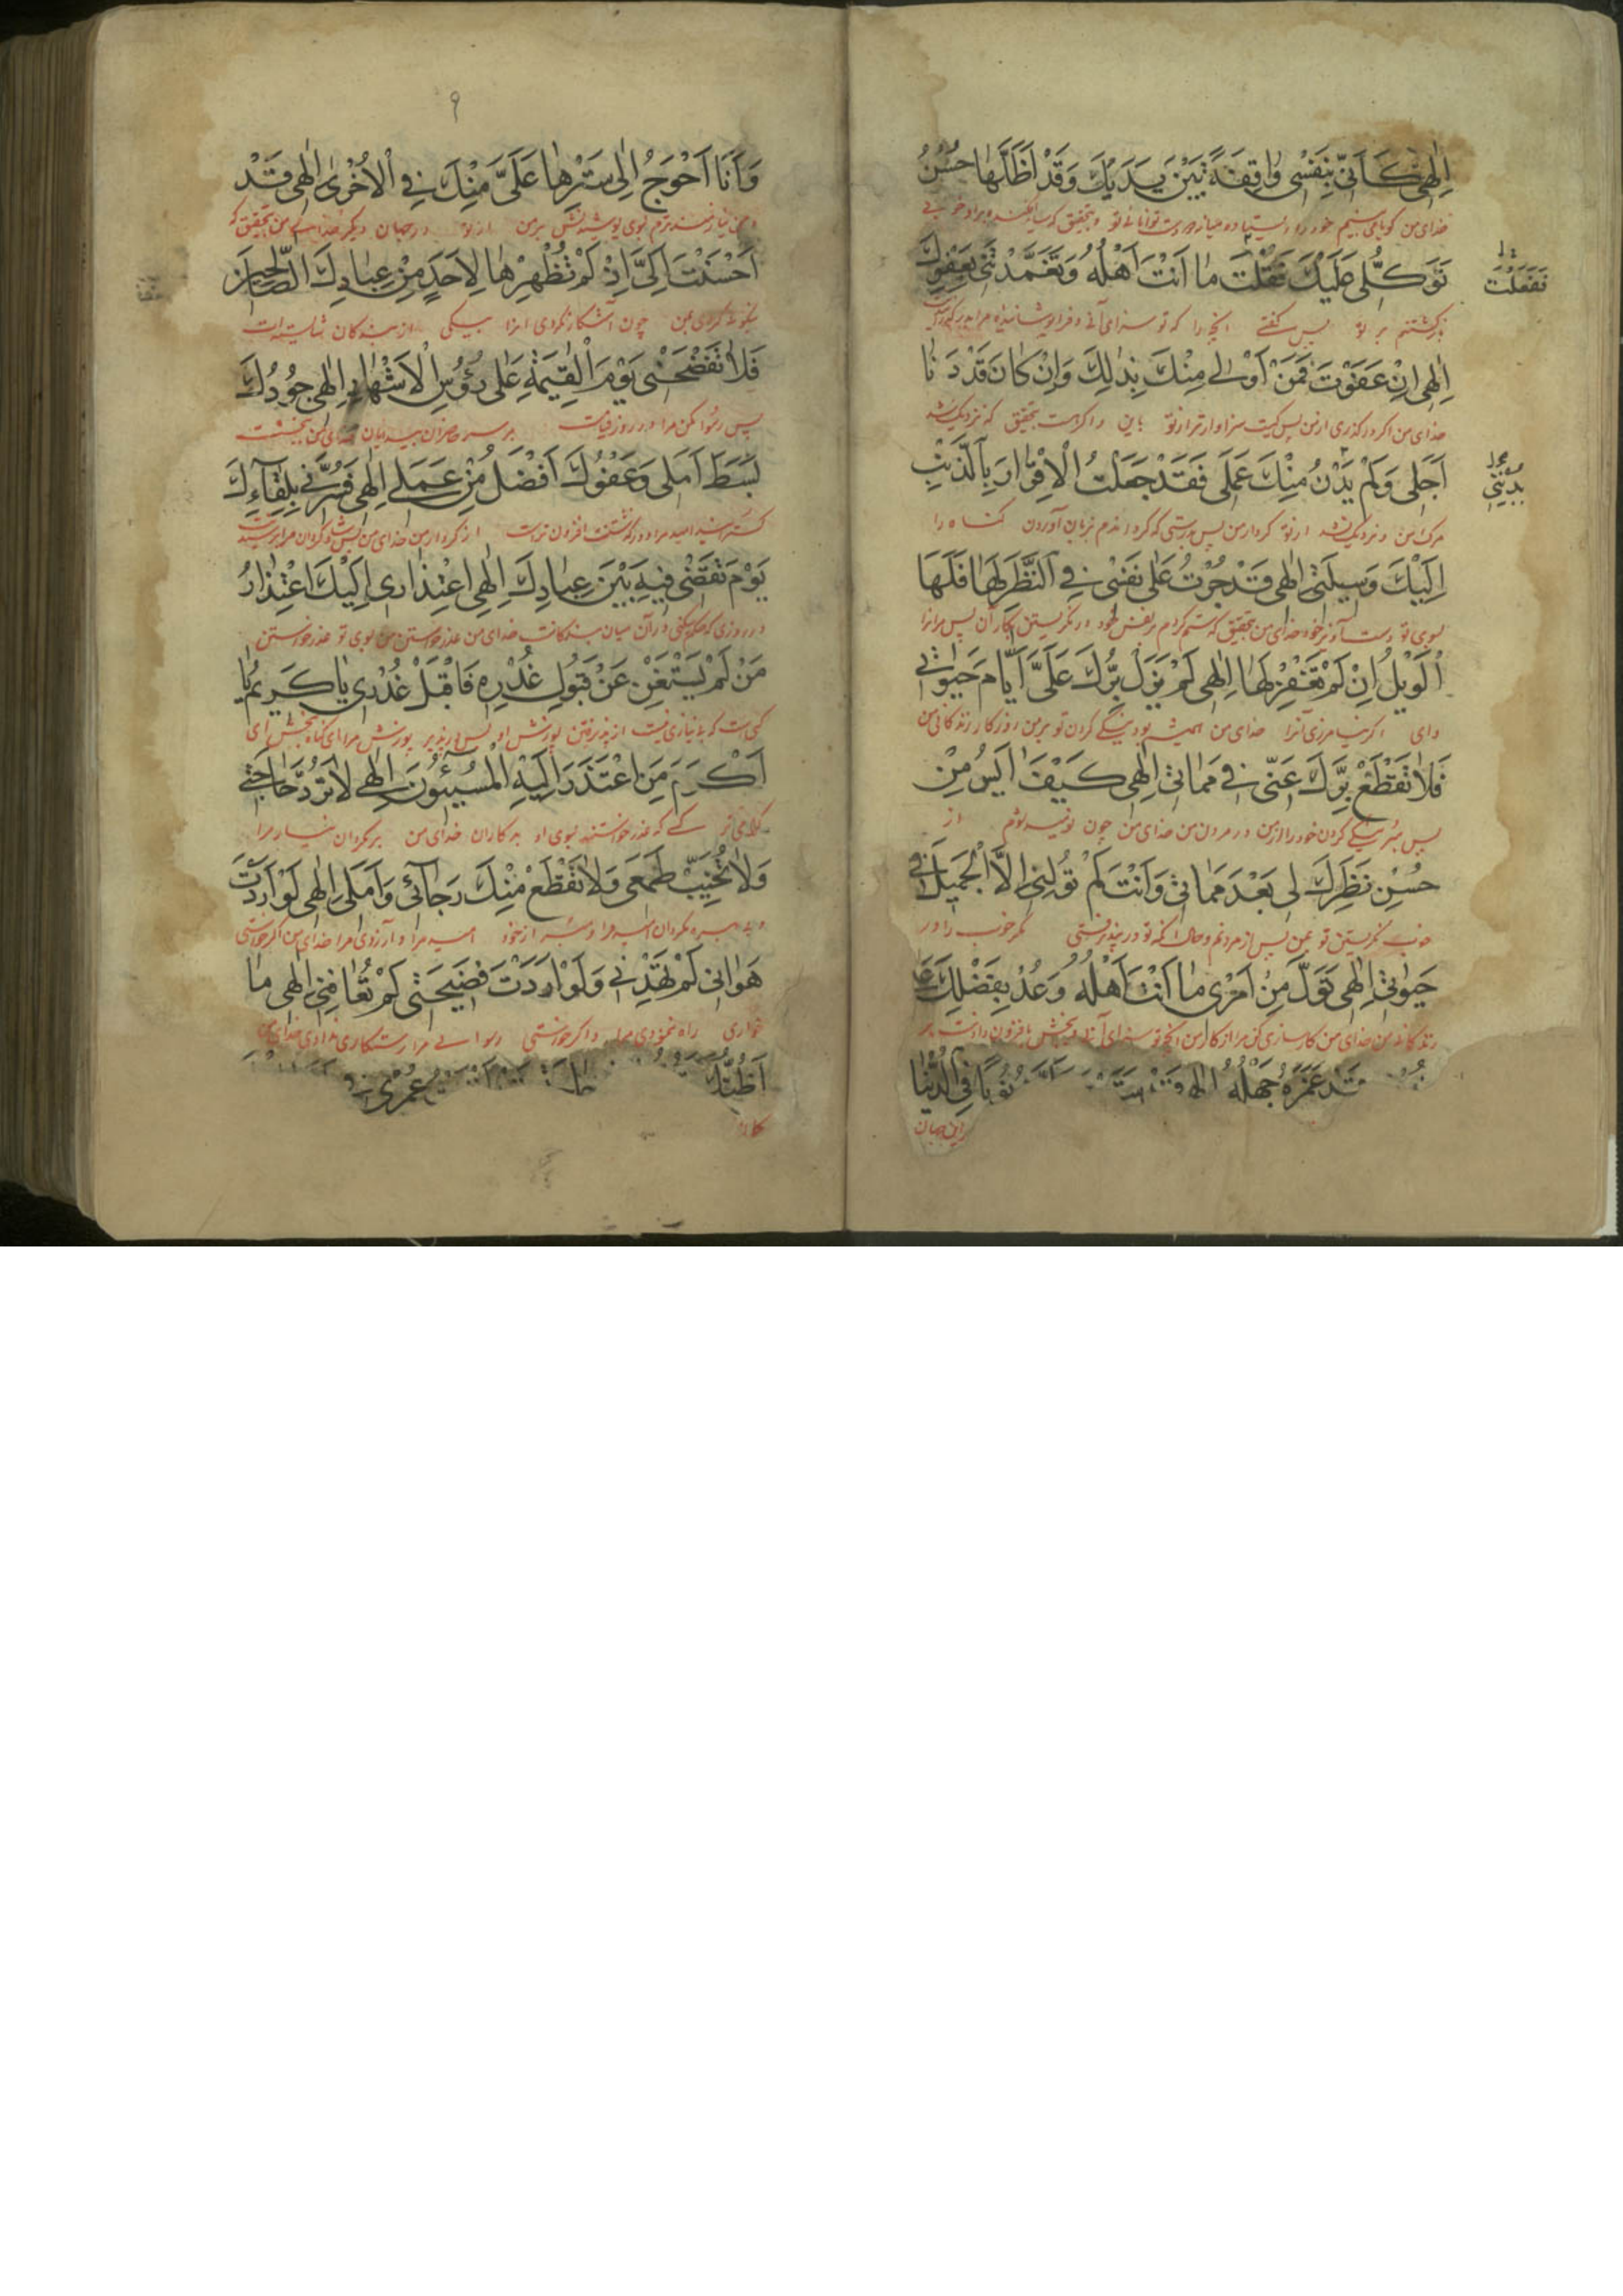 اِلٰهِی كَاَنّی بِنَفْسی وٰاقِفَةً بَیْنَ یَدَیْكَ وَقَدْ اَظَلَّهٰا حُسْنُ
خدای من گویا می بینم خود را ایستاده میانه دو دست توانائی تو و بتحقیق که سایه افکنده بر او خوبی
تَوَكُّلی عَلَیْكَ فَقُلْتَ مٰا اَنْتَ اَهْلُهُ وَتَغَمَّدْتَنی بِعَفْوِكَ
فَفَعَلْتَ
پس گفتی آنچه را که تو سزای آنی
اِلٰهِی اِنْ عَفَوْتَ فَمَنْ اَوْلٰی مِنْكَ بِذٰلِكَ وَاِنْ كٰانَ قَدْ دَنٰا
خدای من اگر درگذری از من پس کیست سزاوارتر از تو باین و اگر هست بتحقیق که نزدیک شد
اَجَلی وَلَمْ یَدْنُ مِنْكَ عَمَلی فَقَدْ جَعَلْتُ الْاِقْرٰارَ بِالذَّنْبِ
یُدْنِنی
مرگ من و نزدیک نشد از تو کردار من پس بدرستی که گردانیدم بزبان آوردن گناه را
اِلَیْكَ وَسیلَتی اِلٰهِی قَدْ جُرْتُ عَلٰی نَفْسی فِی النَّظَرِ لَهٰا فَلَهَا
بسوی تو دست آویز خود خدای من بتحقیق که ستم کردم بر نفس خود در نگریستن بکار آن پس مر او را
الْوَیْلُ اِنْ لَمْ تَغْفِرْ لَهٰا اِلٰهِی لَمْ یَزَلْ بِرُّكَ عَلَیَّ اَیّٰامَ حَیٰوتی
وای اگر نیامرزی آنرا خدای من همیشه بود نیکی کردن تو بر من روزگار زندگانی من
فَلٰا تَقْطَعْ بِرَّكَ عَنّی فی مَمٰاتی اِلٰهِی كَیْفَ اٰیَسُ مِنْ
پس مبر نیکی کردن خود را از من در مردن من خدای من چون نومید شوم از
حُسْنِ نَظَرِكَ لی بَعْدَ مَمٰاتی وَاَنْتَ لَمْ تُوَلِّنی اِلَّا الْجَمیلَ فی
خوب نگریستن تو بمن پس از مردنم و حال آنکه تو مگر خوب را در
حَیٰوتی اِلٰهِی تَوَلَّ مِنْ اَمْری مٰا اَنْتَ اَهْلُهُ وَعُدْ بِفَضْلِكَ عَلٰی
زندگانی من خدای من کارسازی کن مرا از کار من آنچه تو سزای آنی
قَدْ غَمَرَهُ جَهْلُهُ اِلٰهِی ذُنُوبًا فِی الدُّنْیٰا
این جهان
۹
وَاَنَا اَحْوَجُ اِلٰی سَتْرِهٰا عَلَیَّ مِنْكَ فِی الْاُخْرٰی اِلٰهِی قَدْ
و من نیازمندترم بسوی پوشیدنش بر من از تو در جهان دیگر خدای من بتحقیق که
اَحْسَنْتَ اِلَیَّ اِذْ لَمْ تُظْهِرْهٰا لِاَحَدٍ مِنْ عِبٰادِكَ الصّٰالِحینَ
نیکوئی کردی بمن چون آشکار نکردی آنرا بیکی از بندگان شایسته ات
فَلٰا تَفْضَحْنی یَوْمَ الْقِیٰمَةِ عَلٰی رُؤُسِ الْاَشْهٰادِ اِلٰهِی جُودُكَ
پس رسوا مکن مرا در روز قیامت بر سر حاضران خدای من بخششت
بَسَطَ اَمَلی وَعَفْوُكَ اَفْضَلُ مِنْ عَمَلی اِلٰهِی فَسُرَّنی بِلِقٰآئِكَ
گسترانید امید مرا و درگذشتنت افزون تر است از کردار من خدای من پس شاد گردان مرا
یَوْمَ تَقْضی فیهِ بَیْنَ عِبٰادِكَ اِلٰهِی اعْتِذٰاری اِلَیْكَ اعْتِذٰارُ
در روزی که حکم میکنی در آن میان بندگانت خدای من عذر خواستن من بسوی تو عذر خواستن
مَنْ لَمْ یَسْتَغْنِ عَنْ قَبُولِ عُذْرِهِ فَاقْبَلْ عُذْری یٰا كَریمُ یٰا
کسی است که بی نیاز نیست از پذیرفتن پوزش او پس بپذیر پوزش مرا ای گناه بخش ای
اَكْرَمَ مَنِ اعْتَذَرَ اِلَیْهِ الْمُسیٓئُونَ اِلٰهِی لٰا تَرُدَّ حٰاجَتی
گرامی تر کسی که عذر خواستند بسوی او بدکاران خدای من بر مگردان نیاز مرا
وَلٰا تُخَیِّبْ طَمَعی وَلٰا تَقْطَعْ مِنْكَ رَجٰآئی وَاَمَلی اِلٰهِی لَوْ اَرَدْتَ
و بی بهره مگردان امید مرا و مبر از خود امید مرا و آرزوی مرا خدای من اگر خواستی
هَوٰانی لَمْ تَهْدِنی وَلَوْ اَرَدْتَ فَضیحَتی لَمْ تُعٰافِنی اِلٰهِی مٰا
خواری راه ننمودی مرا و اگر خواستی رسوائی مرا رستگاری ندادی خدای من
اَظُنُّكَ عُمْری